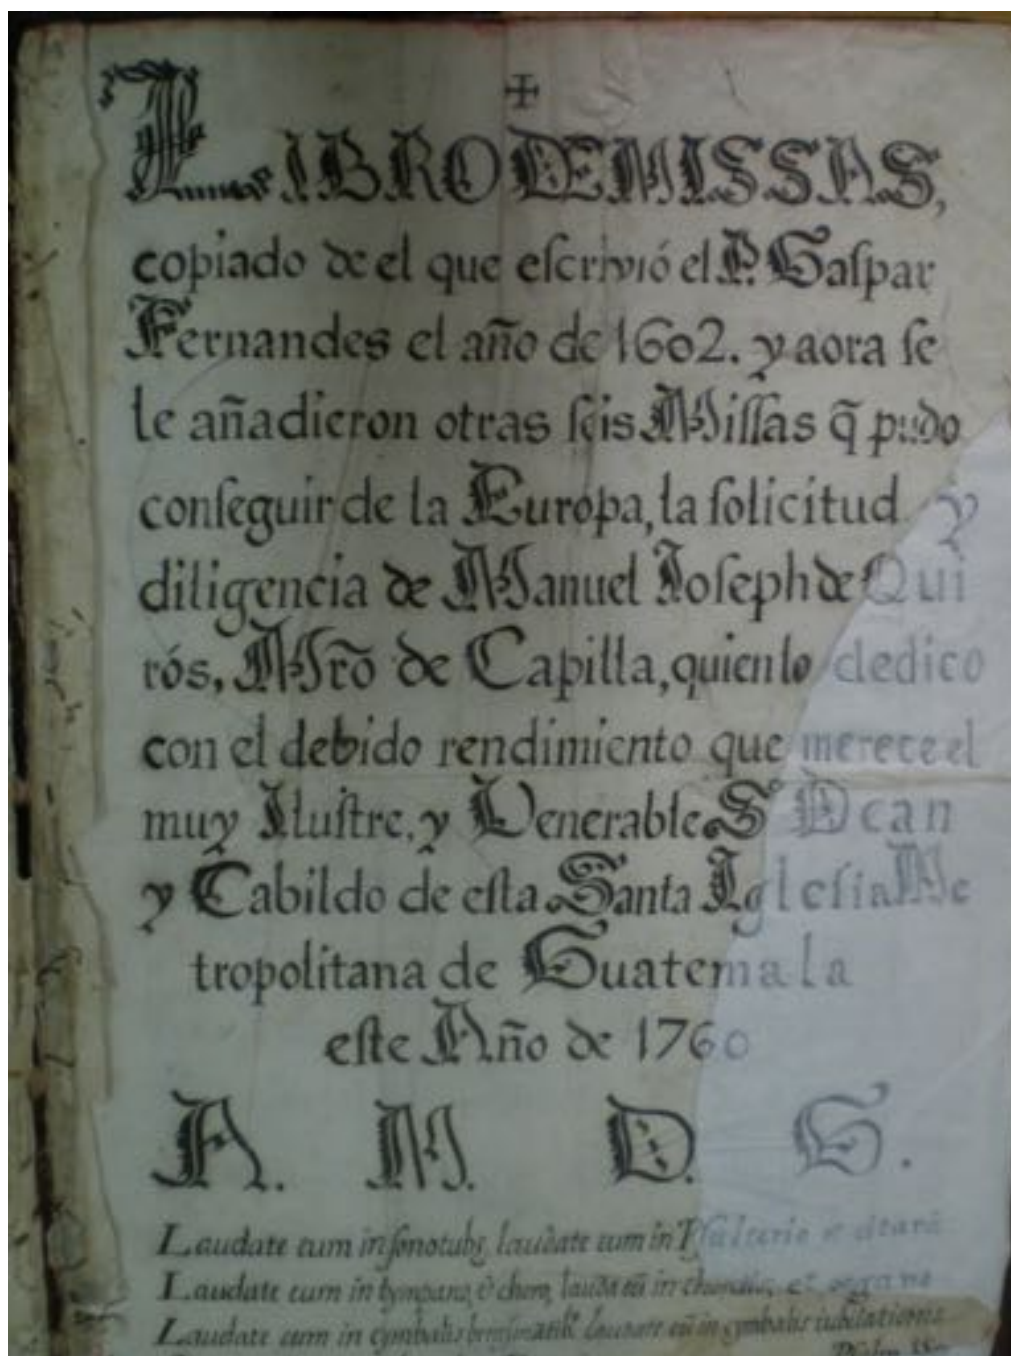 ✠
LIBRO DE MISSAS,
copiado de el que eſcrivió el P. Gaſpar
Fernandes el año de 1602. y aora ſe
le añadieron otras ſeis Miſſas q̃ pudo
conſeguir de la Europa, la ſolicitud y
diligencia de Manuel Ioſeph de Qui
rós, Mrõ de Capilla, quien lo dedico
con el debido rendimiento que merece el
muy Iluſtre, y Venerable Sr Dean
y Cabildo de eſta Santa Igleſia Me
tropolitana de Guatemala
eſte Año de 1760
A. M. D. G.
Laudate eum in ſono tubę, laudate eum in Pſalterio et citară
Laudate eum in tympano, & choro, laudate eũ in chordis, et organo
Laudate eum in cymbalis laudate eũ in cymbalis iubilationis
Pſalm.